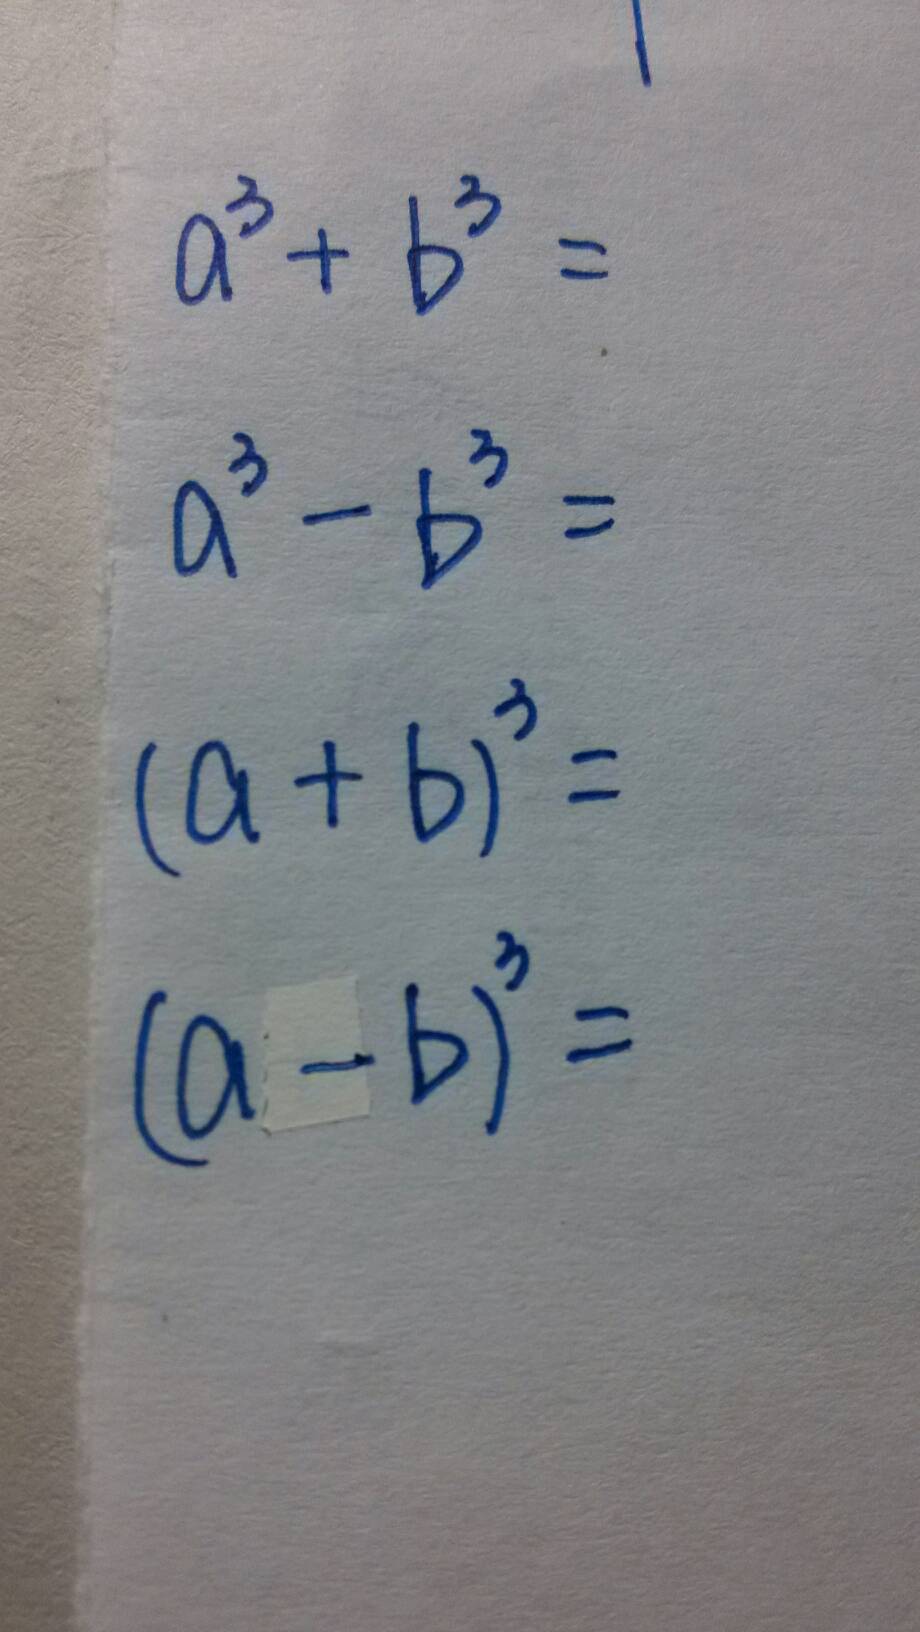 a³ + b³ =
a³ - b³ =
(a + b)³ =
(a - b)³ =